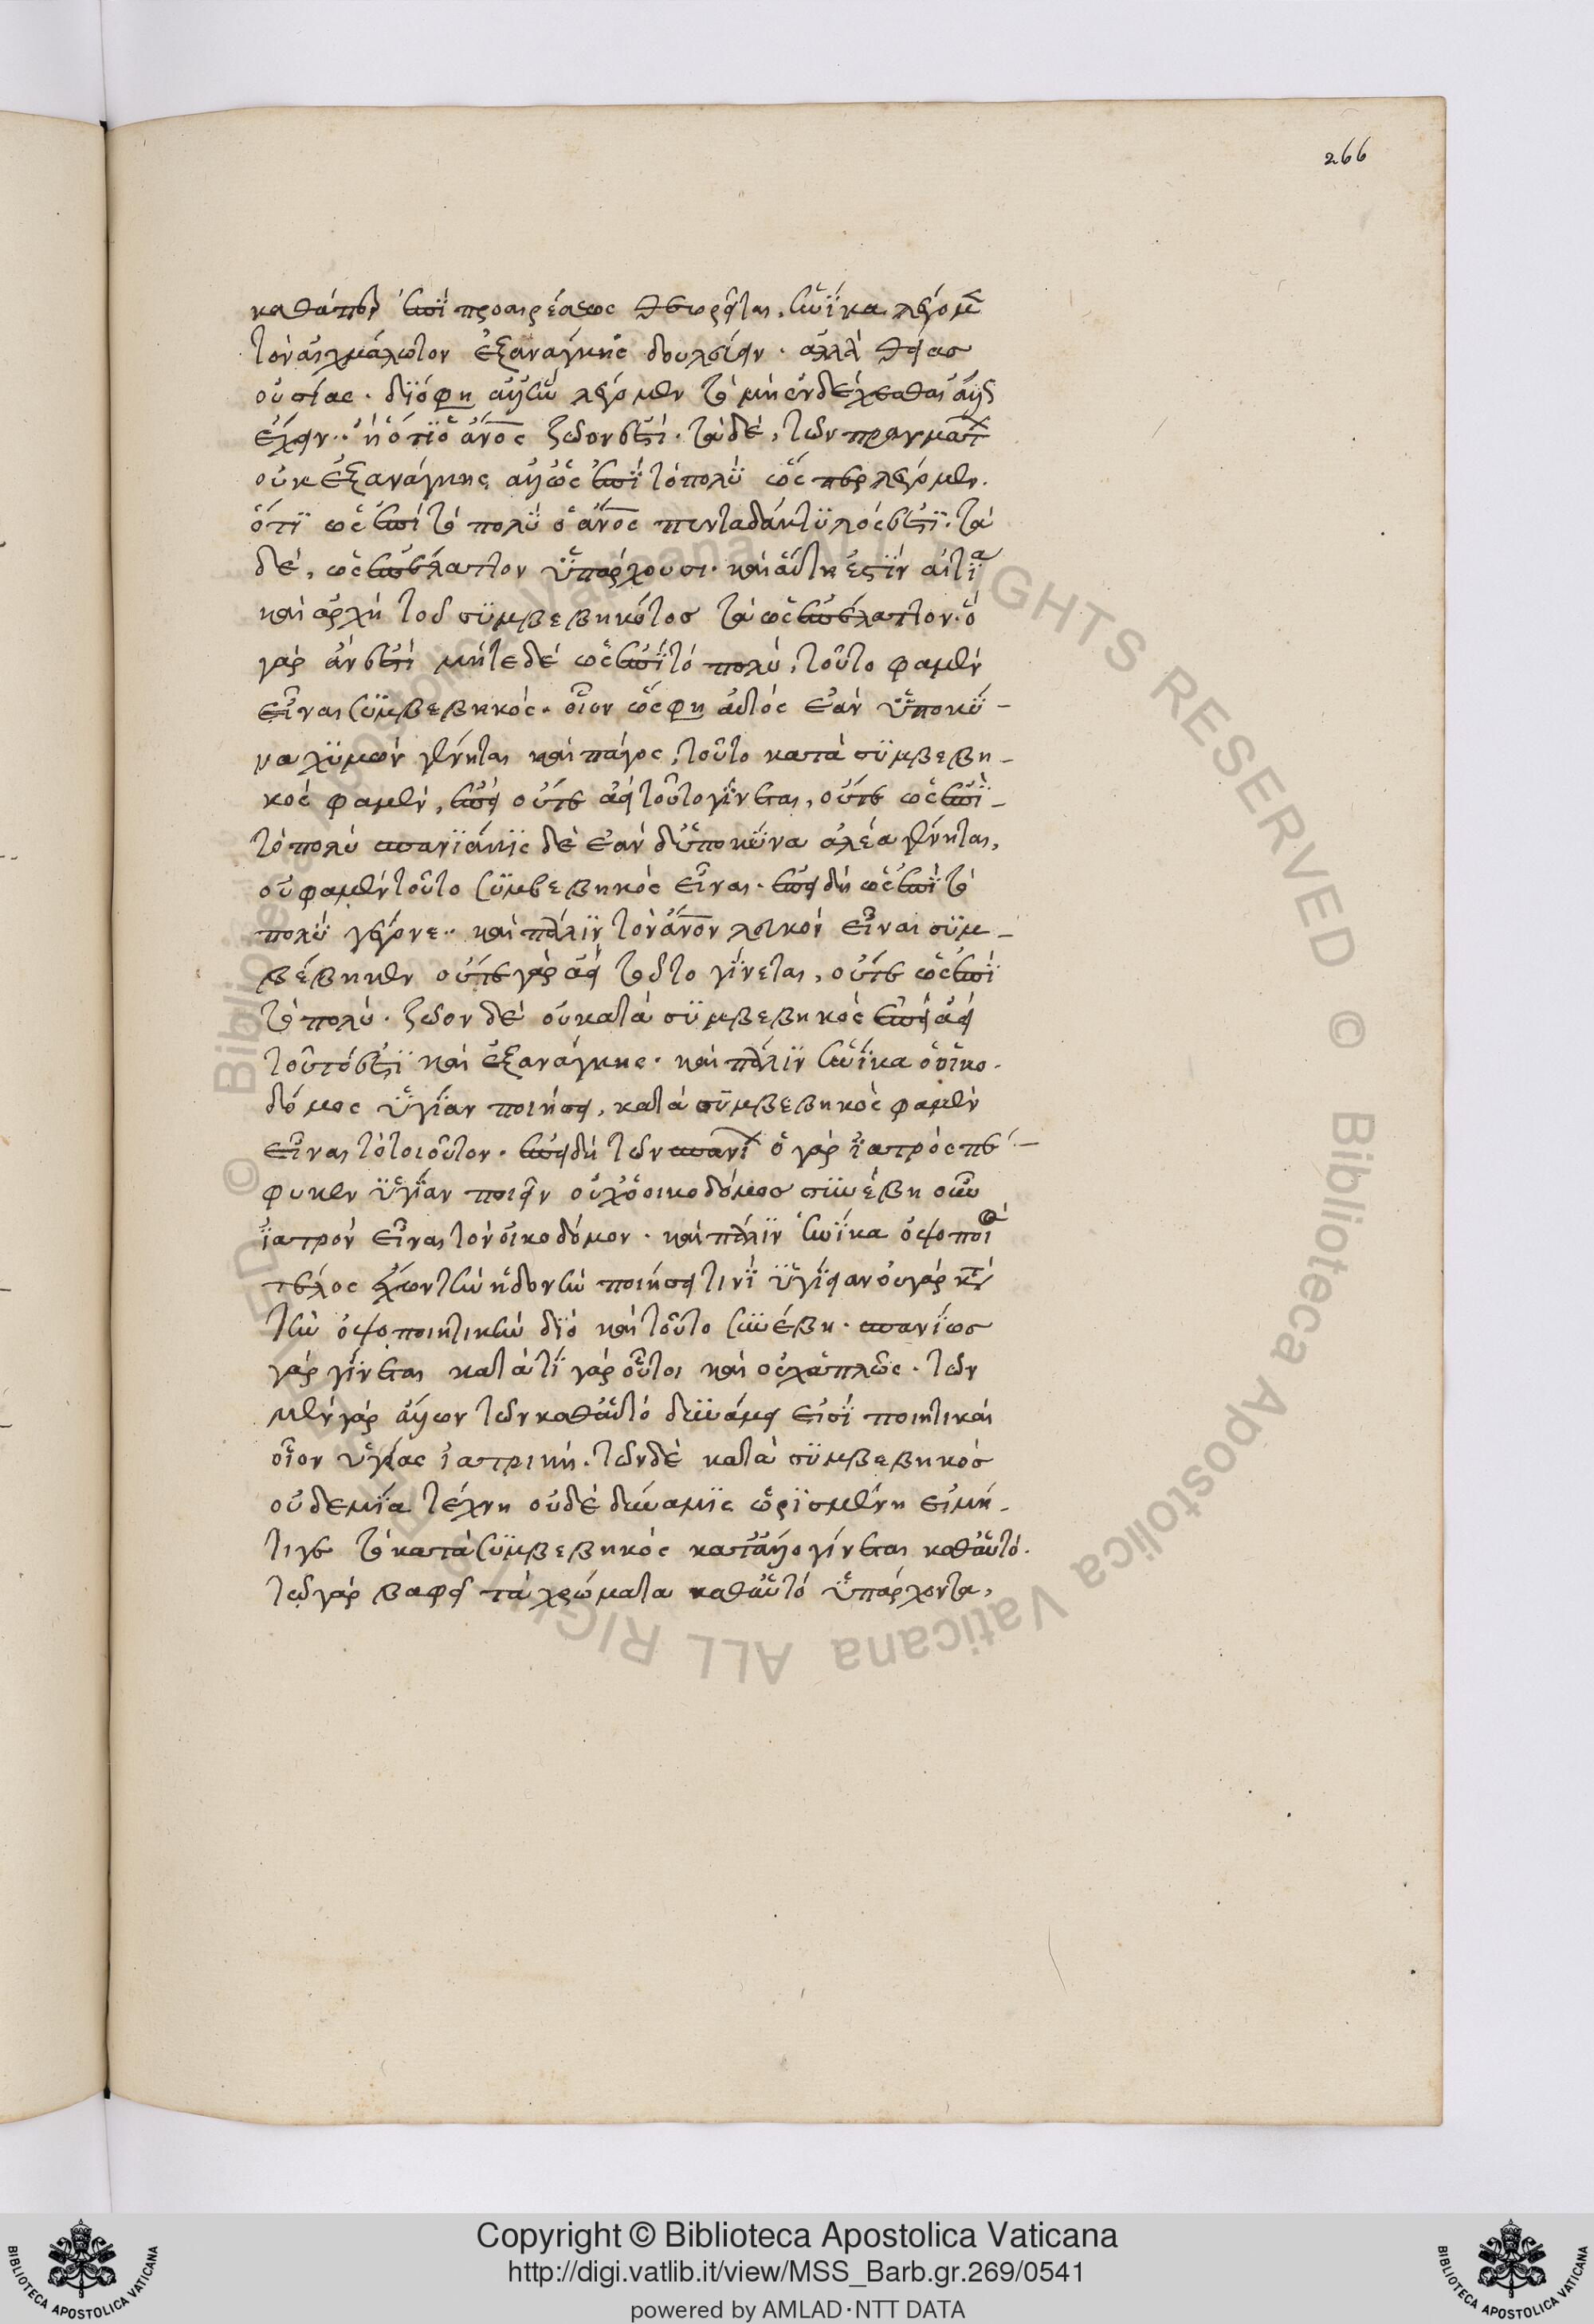 266
καθάπερ ἐπὶ προαιρέσεως θεωρεῖται, ἡνίκα λέγομεν
τὸν αἰχμάλωτον ἐξανάγκης δουλεύειν · ἀλλὰ θείας
οὐσίας · διό φησι αὐτὴν λέγομεν τὸ μὴ ἐνδέχεσθαι ἄλλως
ἔχειν ·· ἢ ὅτι ὁ ἄνος ζῶον ἐστί · τὰ δέ, τῶν πραγμάτ
οὐκ ἐξανάγκης ἀλλ' ὡς ἐπὶ τὸ πολὺ ὥσπερ λέγομεν.
ὅτι ὡς ἐπὶ τὸ πολὺ ὁ ἄνος πενταδάκτυλός ἐστι · τὰ
δέ, ὡς ἐπ' ἔλαττον ὑπάρχουσι · καὶ αὕτη ἐστὶν αἰτία
καὶ ἀρχὴ τοῦ συμβεβηκότος τὰ ὡς ἐπ' ἔλαττον · ὃ
γὰρ ἂν ἐστὶ μήτε δὲ ὡς ἐπὶ τὸ πολὺ, τοῦτο φαμὲν
εἶναι συμβεβηκός · οἷον ὥς φησι αὐτός ἐὰν ὑπὸ κύ-
να χυμὼν γένηται καὶ πάγος, τοῦτο κατὰ συμβεβη-
κός φαμὲν, ἐπεὶ οὔτε ἀεὶ τοῦτο γίνεται, οὔτε ὡς ἐπὶ-
τὸ πολὺ σπανιάκις δὲ ἐὰν δ' ὑπὸ κύνα ἀλέα γένηται,
οὐ φαμὲν τοῦτο συμβεβηκὸς εἶναι · ἐπειδὴ ὡς ἐπὶ τὸ
πολὺ γέγονε ·· καὶ πάλιν τὸν ἄνον λευκὸν εἶναι συμ-
βέβηκεν οὔτε γὰρ ἀεὶ τοῦτο γίνεται, οὔτε ὡς ἐπὶ
τὸ πολύ · ζῶον δὲ οὐ κατὰ συμβεβηκὸς ἐπεὶ ἀεὶ
τοῦτό ἐστι καὶ ἐξανάγκης · καὶ πάλιν ἡνίκα ὁ οἰκο-
δόμος ὑγίαν ποιήσει, κατὰ συμβεβηκὸς φαμὲν
εἶναι τὸ τοιοῦτον · ἐπειδὴ τῶν σπανί ὁ γὰρ ἰατρὸς πέ-
φυκεν ὑγίαν ποιεῖν οὐχ ὁ οἰκοδόμος συνέβη οὖν
ἰατρὸν εἶναι τὸν οἰκοδόμον · καὶ πάλιν ἡνίκα ὀψοποιὸ
τέλος ἔχων τὴν ἡδονὴν ποιήσει τινὶ ὑγίειαν οὐ γὰρ κτ
τὴν ὀψοποιητικὴν διὸ καὶ τοῦτο συνέβη · σπανίως
γὰρ γίνεται κατὰ τί γὰρ οὗτοι καὶ οὐχ ἁπλῶς · τῶν
μὲν γὰρ ἄλλων τῶν καθ' αὑτὸ δυνάμει εἰσὶ ποιητικαὶ
οἷον ὑγίας ἰατρική · τῶν δὲ κατὰ συμβεβηκὸς
οὐδεμία τέχνη οὐδὲ δύναμις ὡρισμένη εἰ μή-
τι γε τὸ κατὰ συμβεβηκὸς κατ' ἄλλο γίνεται καθ' αὑτό.
τῷ γὰρ βαφεῖ τὰ χρώματα καθ' αὑτὸ ὑπάρχοντα,
© Biblioteca Apostolica Vaticana ALL RIGHTS RESERVED
Copyright © Biblioteca Apostolica Vaticana
http://digi.vatlib.it/view/MSS_Barb.gr.269/0541
powered by AMLAD·NTT DATA
BIBLIOTECA APOSTOLICA VATICANA
BIBLIOTECA APOSTOLICA VATICANA